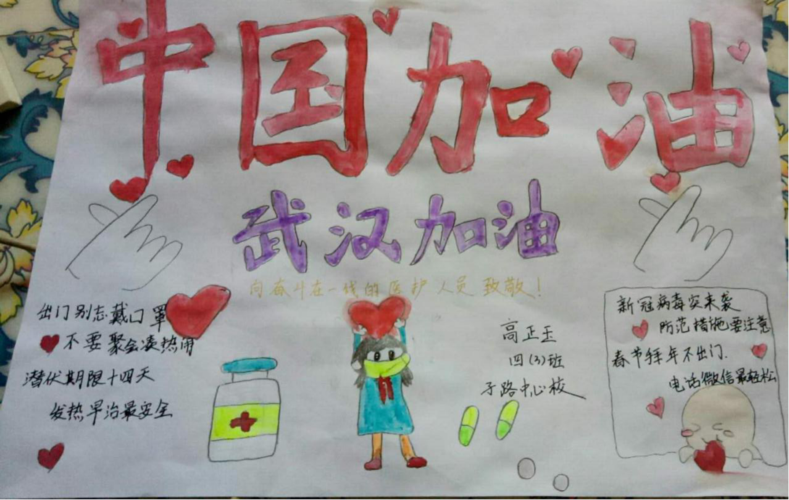 中国加油
武汉加油
向奋斗在一线的医护人员致敬!
出门别忘戴口罩
不要聚会凑热闹
潜伏期限十四天
发热早治最安全
高正玉
四(3)班
子路中心校
新冠病毒突来袭
防范措施要注意
春节拜年不出门.
电话微信最轻松